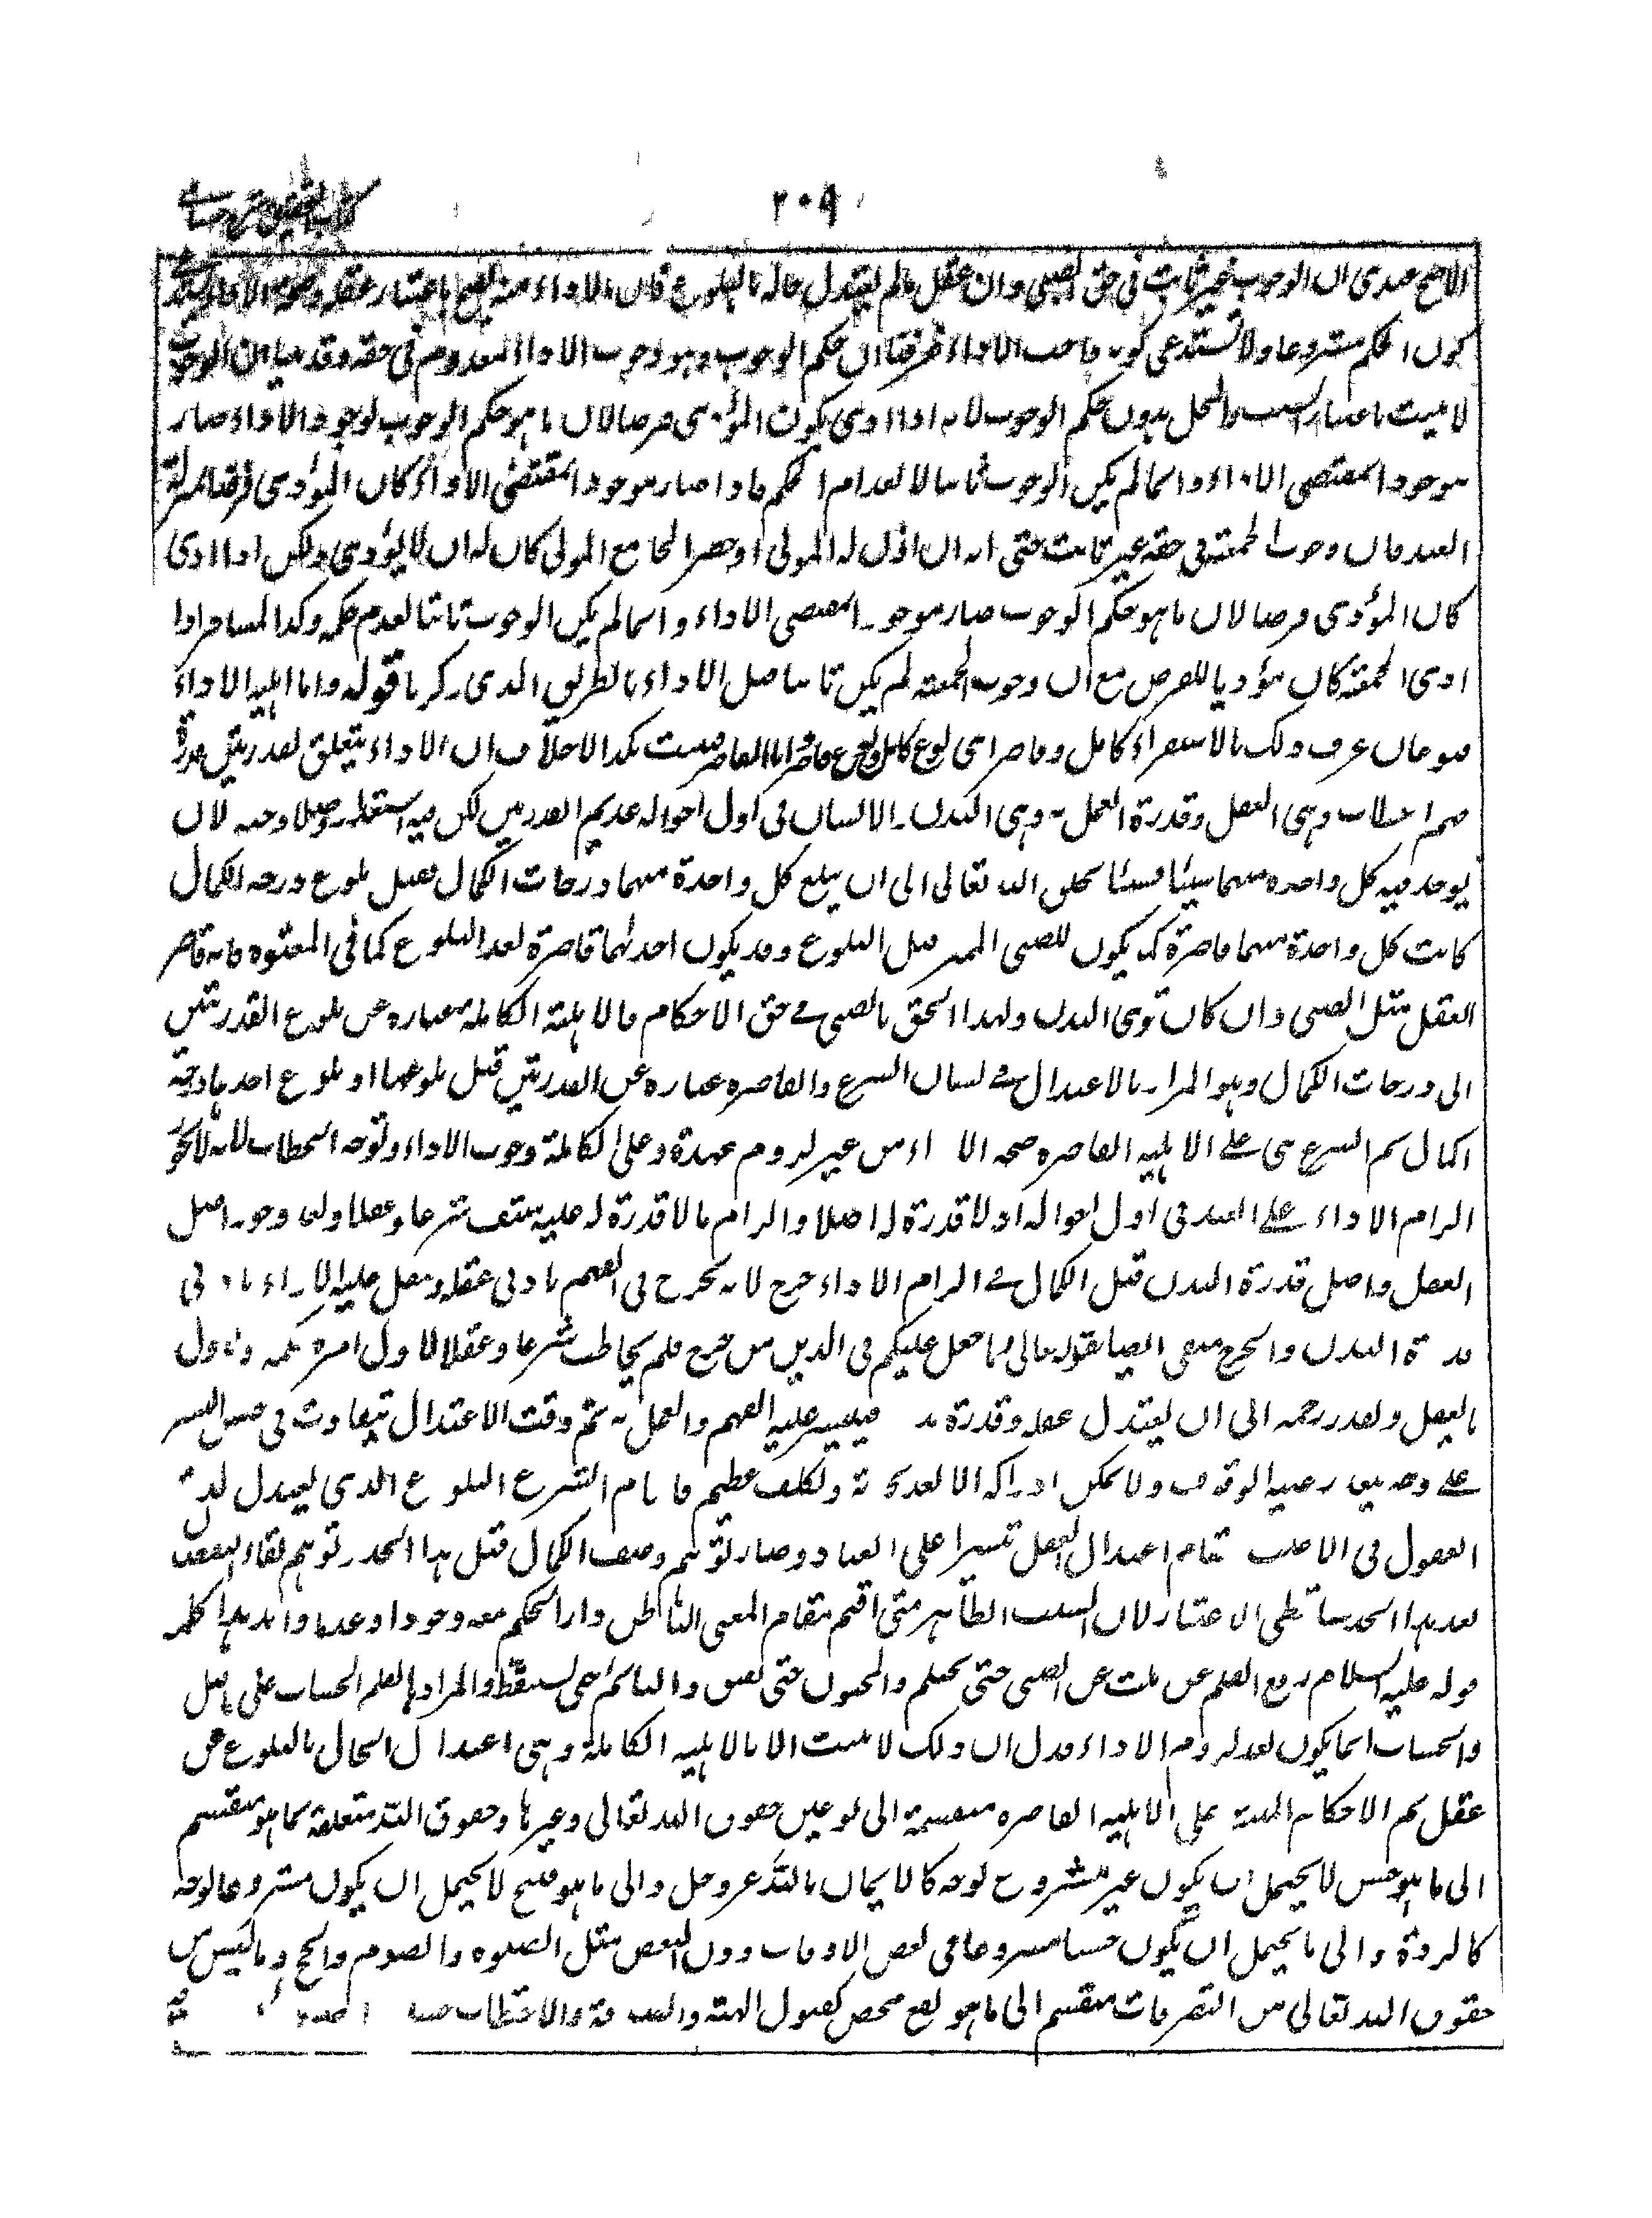 ٢٠٩
الاصح عندى ان الوجوب غير ثابت فى حق الصبى وان عقل مالم يعتدل حاله بالبلوغ فان الاداء منه يصح باعتبار عقله وصحة الاداء
كون الحكم مشروعا ولا تستدعى كونه واجب الاداء فعرفنا ان حكم الوجوب وهو وجوب الاداء المعدوم فى حقه وقد بينا ان الوجوب
لا يثبت باعتبار السبب والمحل بدون حكم الوجوب لانه اذا ادى يكون المؤدى فرضا لان ما هو حكم الوجوب لوجود الاداء صار
موجودا بمقتضى الاداء وانما لم يكن الوجوب ثابتا لانعدام الحكم فاذا صار موجودا بمقتضى الاداء كان المؤدى فرضا بمنزلة
العبد فان وجوب الجمعة فى حقه غير ثابت حتى انه ان اذن له المولى او حضر الجامع المولى كان له ان لا يؤدى ولكن اذا ادى
كان المؤدى فرضا لان ما هو حكم الوجوب صار موجودا بمقتضى الاداء وانما لم يكن الوجوب ثابتا لعدم حكمه وكذا المسافر اذا
ادى الجمعة كان مؤديا للفرض مع ان وجوب الجمعة لم يكن ثابتا قبل الاداء بالطريق الذى ذكرنا قوله واما اهلية الاداء
فنوعان عرف ذلك بالاستقراء كامل وقاصر اى نوع كامل ونوع قاصر اما القاصر فيثبت بكذا لاخلاف ان الاداء يتعلق بقدرتين قدرة
فهم الخطاب وهى العقل وقدرة العمل به وهى البدن والانسان فى اول احواله عديم القدرتين لكن فيه استعداد وصلاحية لان
يوجد فيه كل واحدة منهما شيئا فشيئا بخلق الله تعالى الى ان يبلغ كل واحدة منهما درجات الكمال فقبل بلوغ درجة الكمال
كانت كل واحدة منهما قاصرة كما يكون للصبى المميز قبل البلوغ وقد يكون احدهما قاصرة بعد البلوغ كما فى المعتوه فانه قاصر
العقل مثل الصبى وان كان قوى البدن ولهذا الحق بالصبى فى حق الاحكام فالاهلية الكاملة عبارة عن بلوغ القدرتين
الى درجات الكمال وهو المراد بالاعتدال فى لسان الشرع والقاصرة عبارة عن القدرتين قبل بلوغهما او بلوغ احدهما درجة
الكمال ثم الشرع بنى على الاهلية القاصرة صحة الاداء من غير لزوم عهدة وعلى الكاملة وجوب الاداء وتوجه الخطاب لانه لا يجوز
الزام الاداء على العبد فى اول احواله اذ لا قدرة له اصلا والزام ما لا قدرة له عليه منتف شرعا وعقلا وبعد وجود اصل
العقل واصل قدرة البدن قبل الكمال فى الزام الاداء حرج لانه يحرج فى الفهم بادنى عقله ويثقل عليه الاداء بادنى
قدرة البدن والحرج منفى ايضا بقوله تعالى وما جعل عليكم فى الدين من حرج فلم يخاطب شرعا وعقلا لاول امره حكمة ولاول
ما يعقل ويقدر رحمة الى ان يعتدل عقله وقدرة بدنه فيتيسر عليه الفهم والعمل به ثم وقت الاعتدال يتفاوت فى جنس البشر
على وجه يتعذر عليه الوقوف ولا يمكن ادراكه الا بعد تجربة وتكلف عظيم فاقام الشرع البلوغ الذى يعتدل لديه
العقول فى الاغلب مقام اعتدال العقل تيسيرا على العباد وصار توهم وصف الكمال قبل هذا الحد وتوهم بقاء النقصان
بعد هذا الحد ساقطى الاعتبار لان السبب الظاهر متى اقيم مقام المعنى الباطن دار الحكم معه وجودا وعدما وايد هذا كله
قوله عليه السلام رفع القلم عن ثلث عن الصبى حتى يحتلم والمجنون حتى يفيق والنائم حتى يستيقظ والمراد بالقلم الحساب على ما قيل
والحساب انما يكون بعد لزوم الاداء فدل ان ذلك لا يثبت الا بالاهلية الكاملة وهى اعتدال الحال بالبلوغ عن
عقل ثم الاحكام المبنية على الاهلية القاصرة منقسمة الى نوعين حقوق الله تعالى وغيرها وحقوق الله متعلقة بما هو منقسم
الى ما هو حسن لا يحتمل ان يكون غير مشروع بوجه كالايمان بالله عز وجل والى ما هو قبيح لا يحتمل ان يكون مشروعا بوجه
كالردة والى ما يحتمل ان يكون حسنا مشروعا فى بعض الاوقات دون البعض مثل الصلوة والصوم والحج وما ليس من
حقوق الله تعالى من التصرفات منقسم الى ما هو نفع محض كقبول الهبة والصدقة والاحتطاب